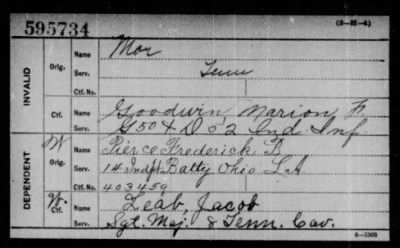 595734
(3-M-4)
INVALID
Orig.
Name Mor
Serv. Tenn
Ctf. No.
Ctf.
Name Goodwin, Marion F
Serv. G 50 & D 52 Ind. Inf
DEPENDENT
W
Orig.
Name Pierce Frederick B
Serv. 1st Indpt Batty Ohio L.A
Ctf. No. 403459
W.
Ctf.
Name Leab, Jacob
Serv. Sgt. Maj. 8 Tenn. Cav.